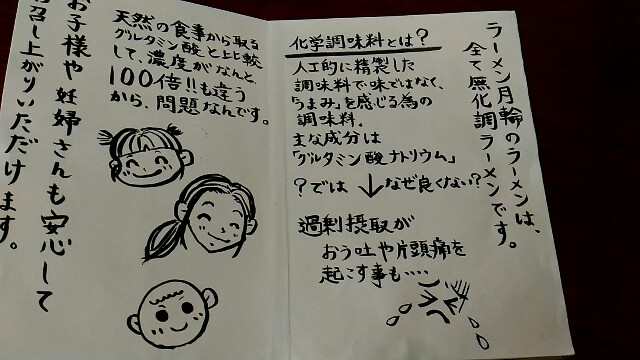 ラーメン月輪のラーメンは、
全て無化調ラーメンです。
化学調味料とは?
人工的に精製した
調味料で味ではなく、
「うまみ」を感じる為の
調味料。
主な成分は
「グルタミン酸ナトリウム」
?では↓なぜ良くない?
過剰摂取が
おう吐や片頭痛を
起こす事も‥‥
天然の食事から取る
グルタミン酸と比較
して、濃度がなんと、
100倍!!も違う
から、問題なんです。
お子様や妊婦さんも安心して
お召し上がりいただけます。